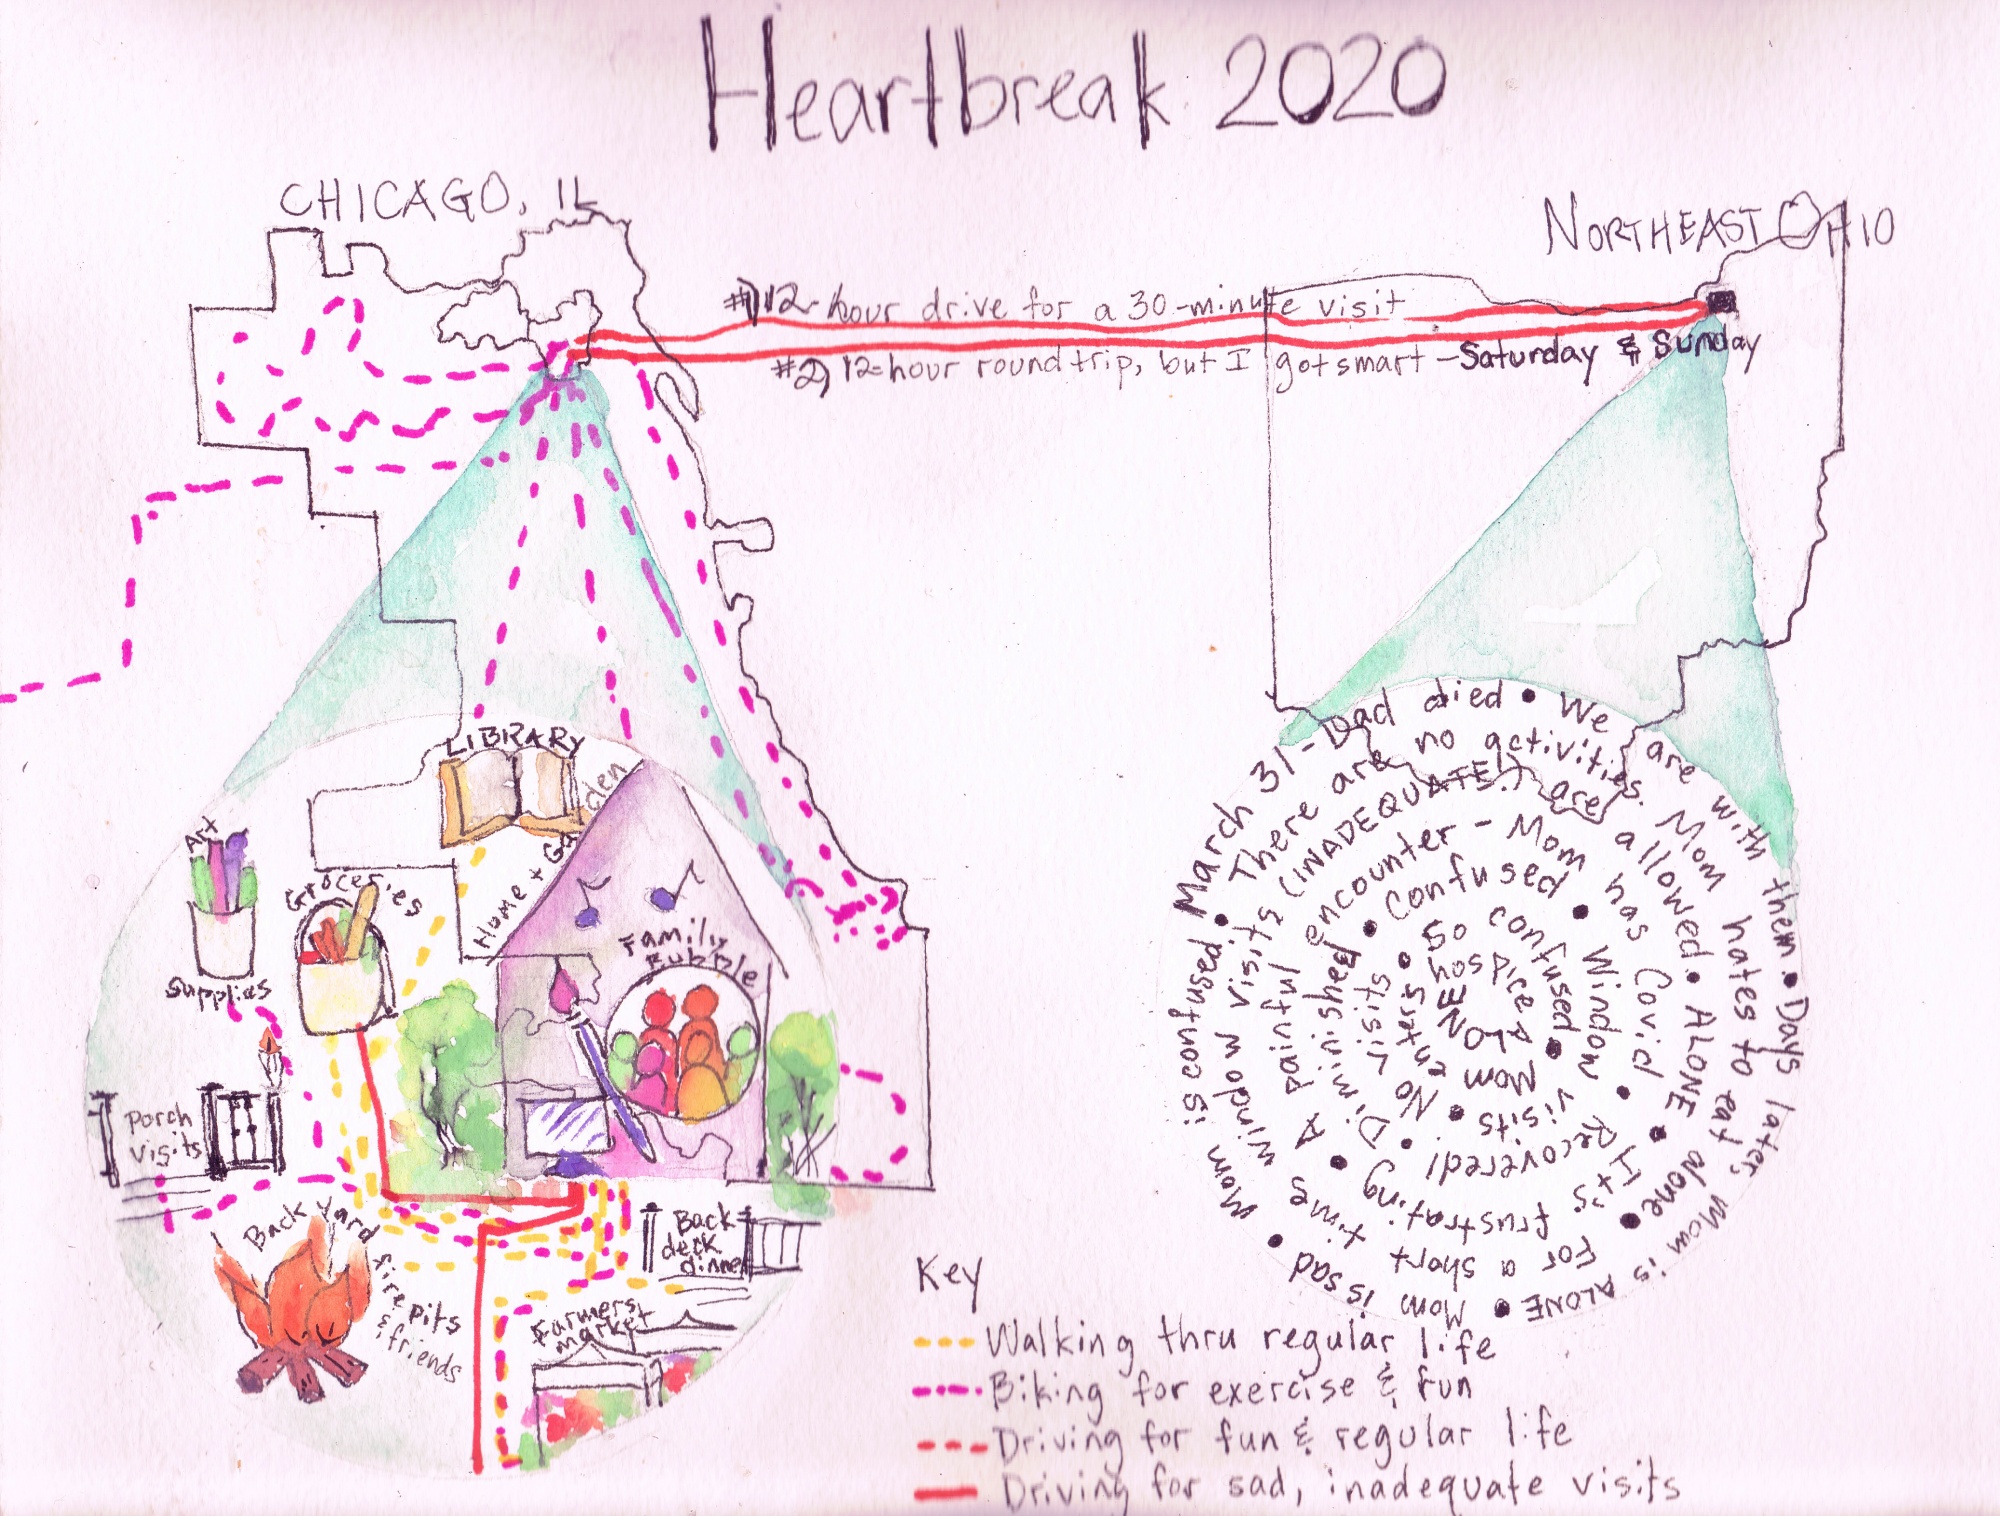 Heartbreak 2020
CHICAGO, IL
NORTHEAST OHIO
#1) 12-hour drive for a 30-minute visit
#2) 12-hour round trip, but I got smart - Saturday & Sunday
LIBRARY
Home + Garden
Art
Supplies
Groceries
Family
Bubble
Porch
visits
Back yard firepits
& friends
Back
deck
dinner
Farmers
market
March 31 - Dad died • We are with them • Days later, Mom is ALONE • Mom is sad • Mom is confused • There are no activities. Mom hates to eat alone • For a short time window visits (INADEQUATE!) are allowed • ALONE • It's frustrating • A painful encounter - Mom has Covid • Recovered! • Diminished • Confused • Window visits • No visits • So confused • Mom enters hospice ALONE
Key
Walking thru regular life
Biking for exercise & fun
Driving for fun & regular life
Driving for sad, inadequate visits